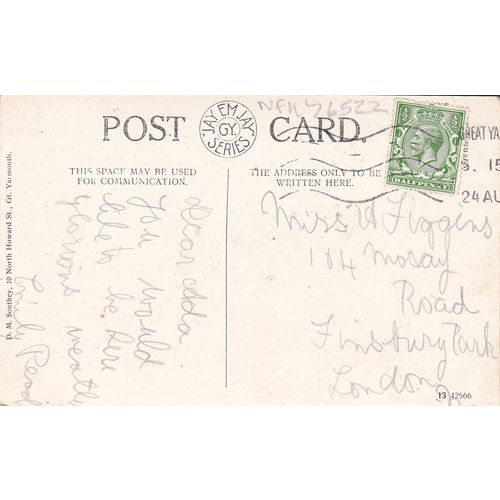 NFK 76522
JAY EM JAY
GY.
SERIES
POST CARD.
THIS SPACE MAY BE USED
FOR COMMUNICATION.
THE ADDRESS ONLY TO BE
WRITTEN HERE.
HALFPENNY
GREAT YA
3. 15
24 AU
D. M. Southey, 10 North Howard St., Gt. Yarmouth.
Dear Ada
You would
like to be here
glorious weath
Emily Read
Miss A Figgens
104 Mosay
Road
Finsbury Park
London
13 42566